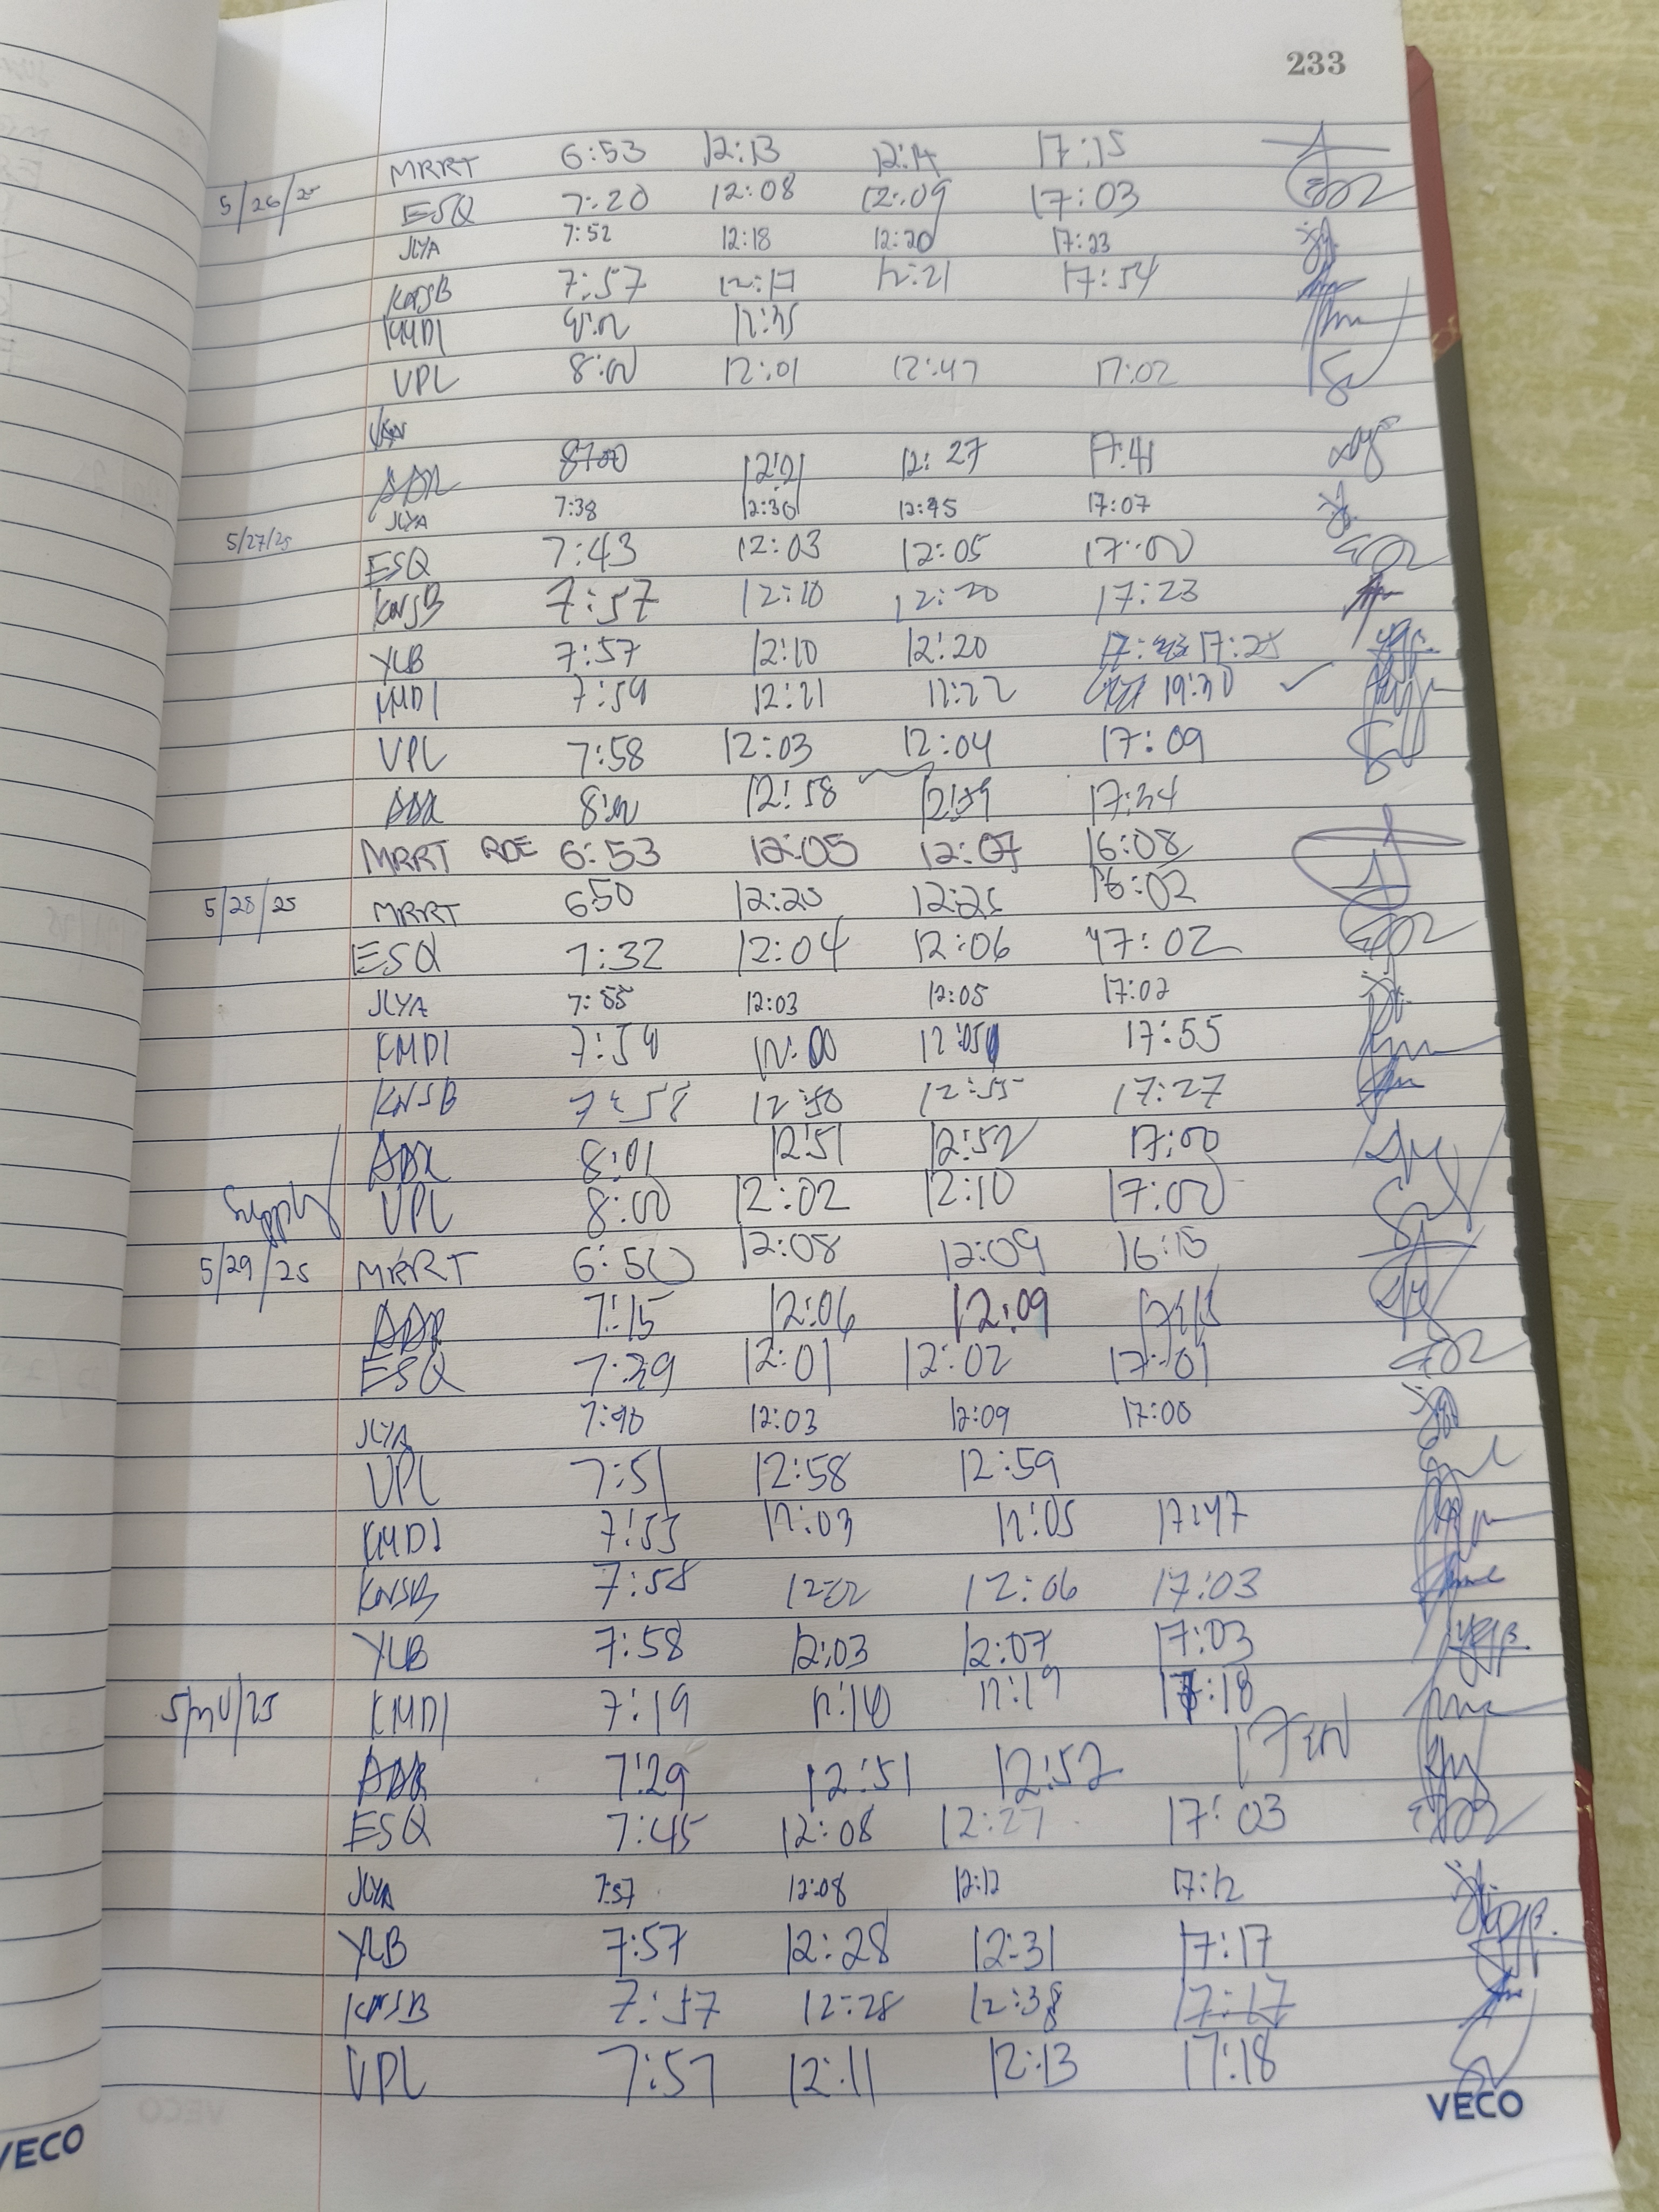 233
MRRT 6:53 12:13 12:14 17:15
5/26/25 ESQ 7:20 12:08 12:09 17:03
JLYA 7:52 12:18 12:20 17:23
KNSB 7:57 12:17 12:21 17:54
KMDI 12:35
VPL 8:00 12:01 12:47 17:02
ADR 8:00 12:21 12:27 17:41
JLYA 7:38 12:30 12:45 17:07
5/27/25 ESQ 7:43 12:03 12:05 17:00
KNSB 7:57 12:10 12:20 17:23
YLB 7:57 12:10 12:20 17:25
KMDI 7:59 12:21 12:22 19:30
VPL 7:58 12:03 12:04 17:09
ADR 8:00 12:58 12:59 17:34
MRRT RDE 6:53 12:05 12:07 16:08
5/28/25 MRRT 6:50 12:20 12:25 16:02
ESQ 7:32 12:04 12:06 17:02
JLYA 7:55 12:03 12:05 17:02
KMDI 7:59 12:00 12:05 17:55
KNSB 7:58 12:50 12:55 17:27
ADR 8:01 12:51 12:52 17:00
Supply VPL 8:00 12:02 12:10 17:00
5/29/25 MRRT 6:50 12:08 12:09 16:15
ADR 7:15 12:06 12:09
ESQ 7:39 12:01 12:02 17:01
JLYA 7:40 12:03 12:09 17:00
VPL 7:51 12:58 12:59
KMDI 7:53 12:03 12:05 17:47
KNSB 7:58 12:02 12:06 17:03
YLB 7:58 12:03 12:07 17:03
5/30/25 KMDI 7:19 12:10 12:19 17:18
ADR 7:29 12:51 12:52 17:00
ESQ 7:45 12:08 12:27 17:03
JLYA 7:57 12:08 12:12 17:12
YLB 7:57 12:28 12:31 17:17
KNSB 7:57 12:28 12:38 17:17
VPL 7:57 12:11 12:13 17:18
VECO
VECO